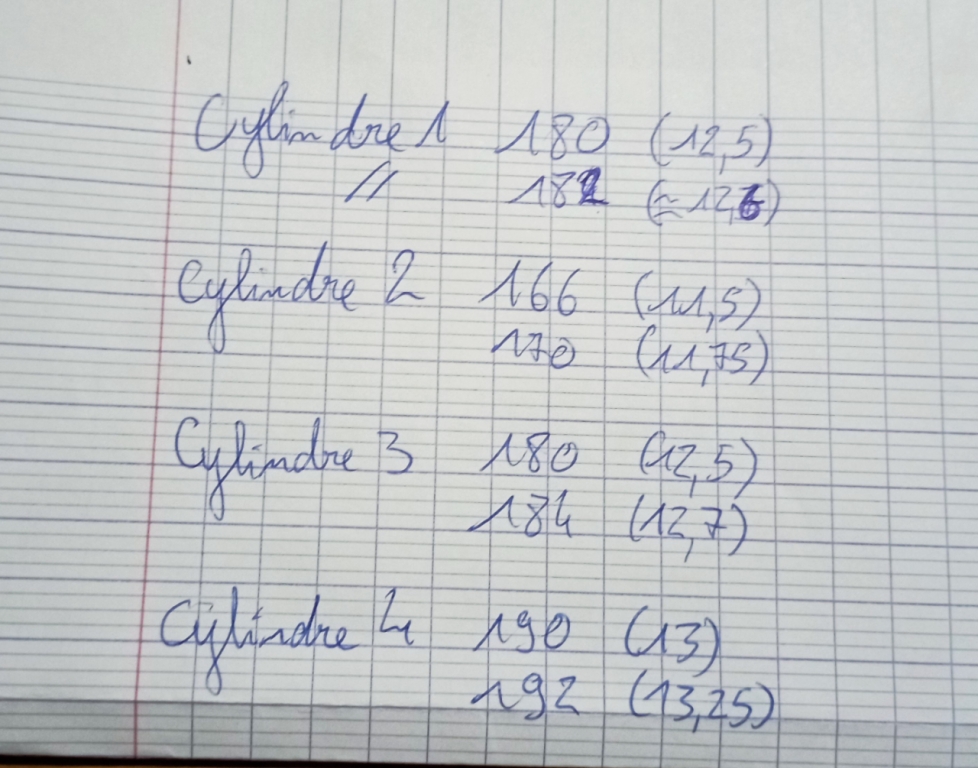 Cylindre 1 180 (12,5)
" 182 (≈12,6)
Cylindre 2 166 (11,5)
170 (11,75)
Cylindre 3 180 (12,5)
184 (12,7)
Cylindre 4 190 (13)
192 (13,25)